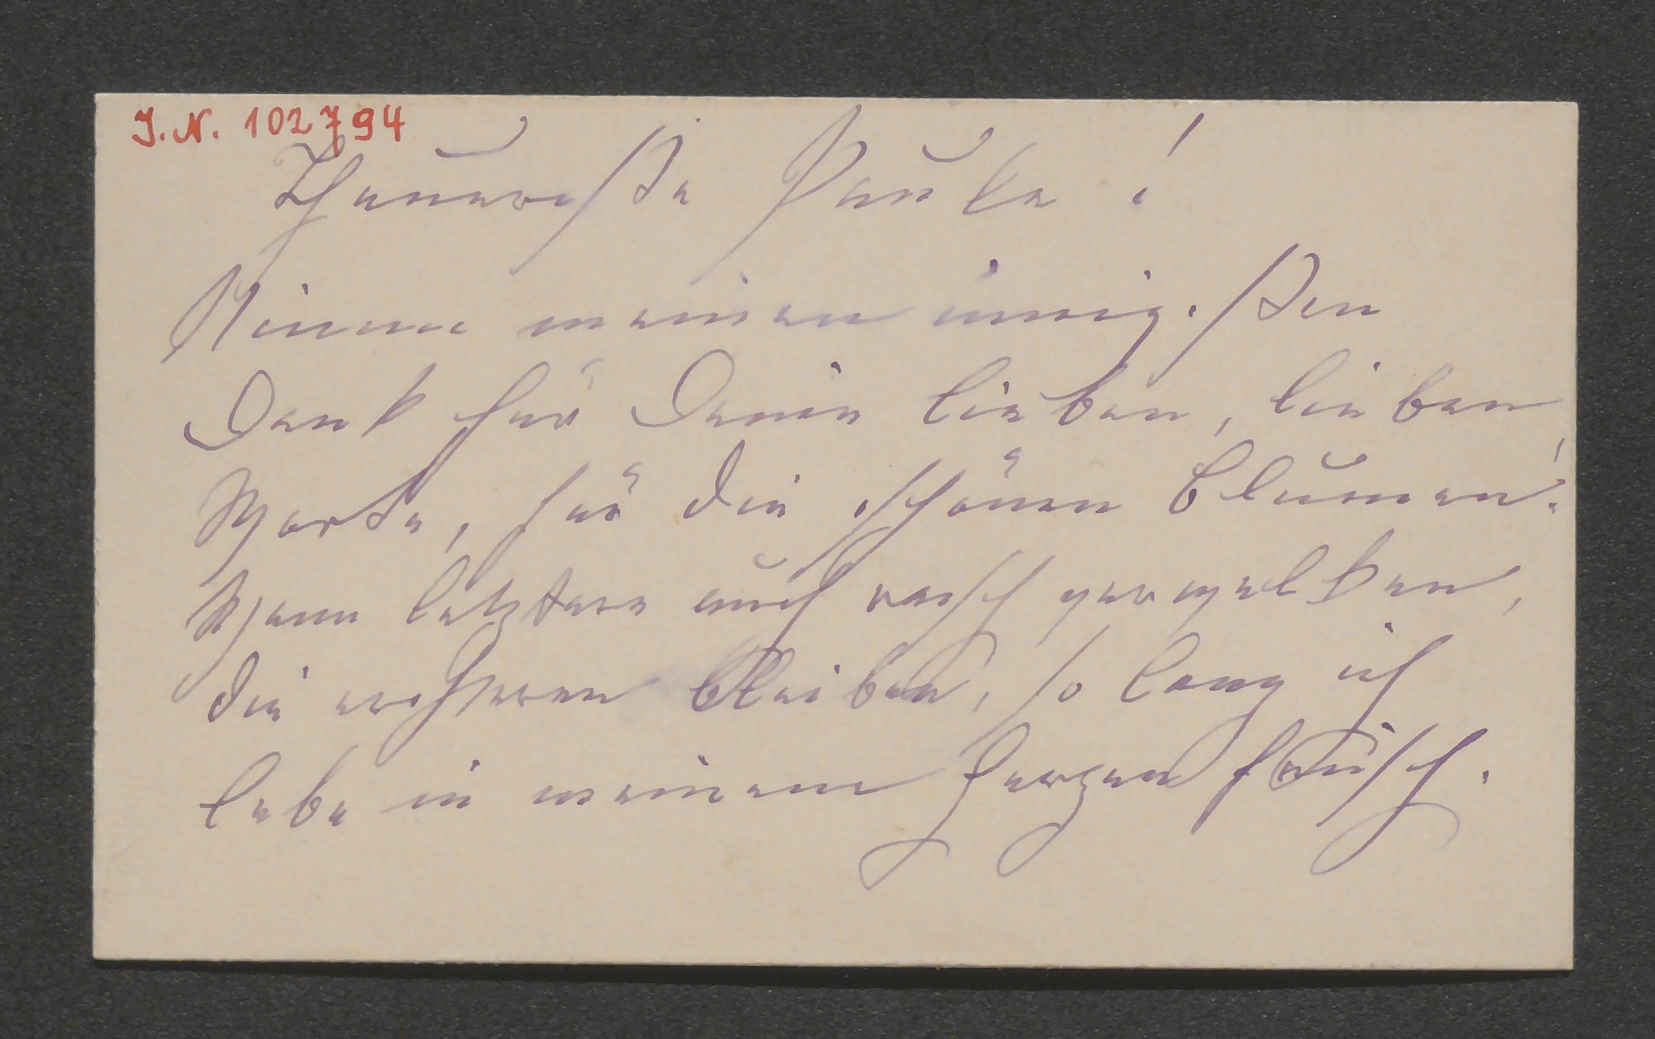 J. N. 102794
Theuerste Paula!
Nimm meinen innigsten
Dank für Deine lieben, lieben
Worte, für die schönen Blumen!
Wenn letztere auch rasch verwelken,
die ersteren bleiben, so lang ich
lebe in meinem Herzen frisch.